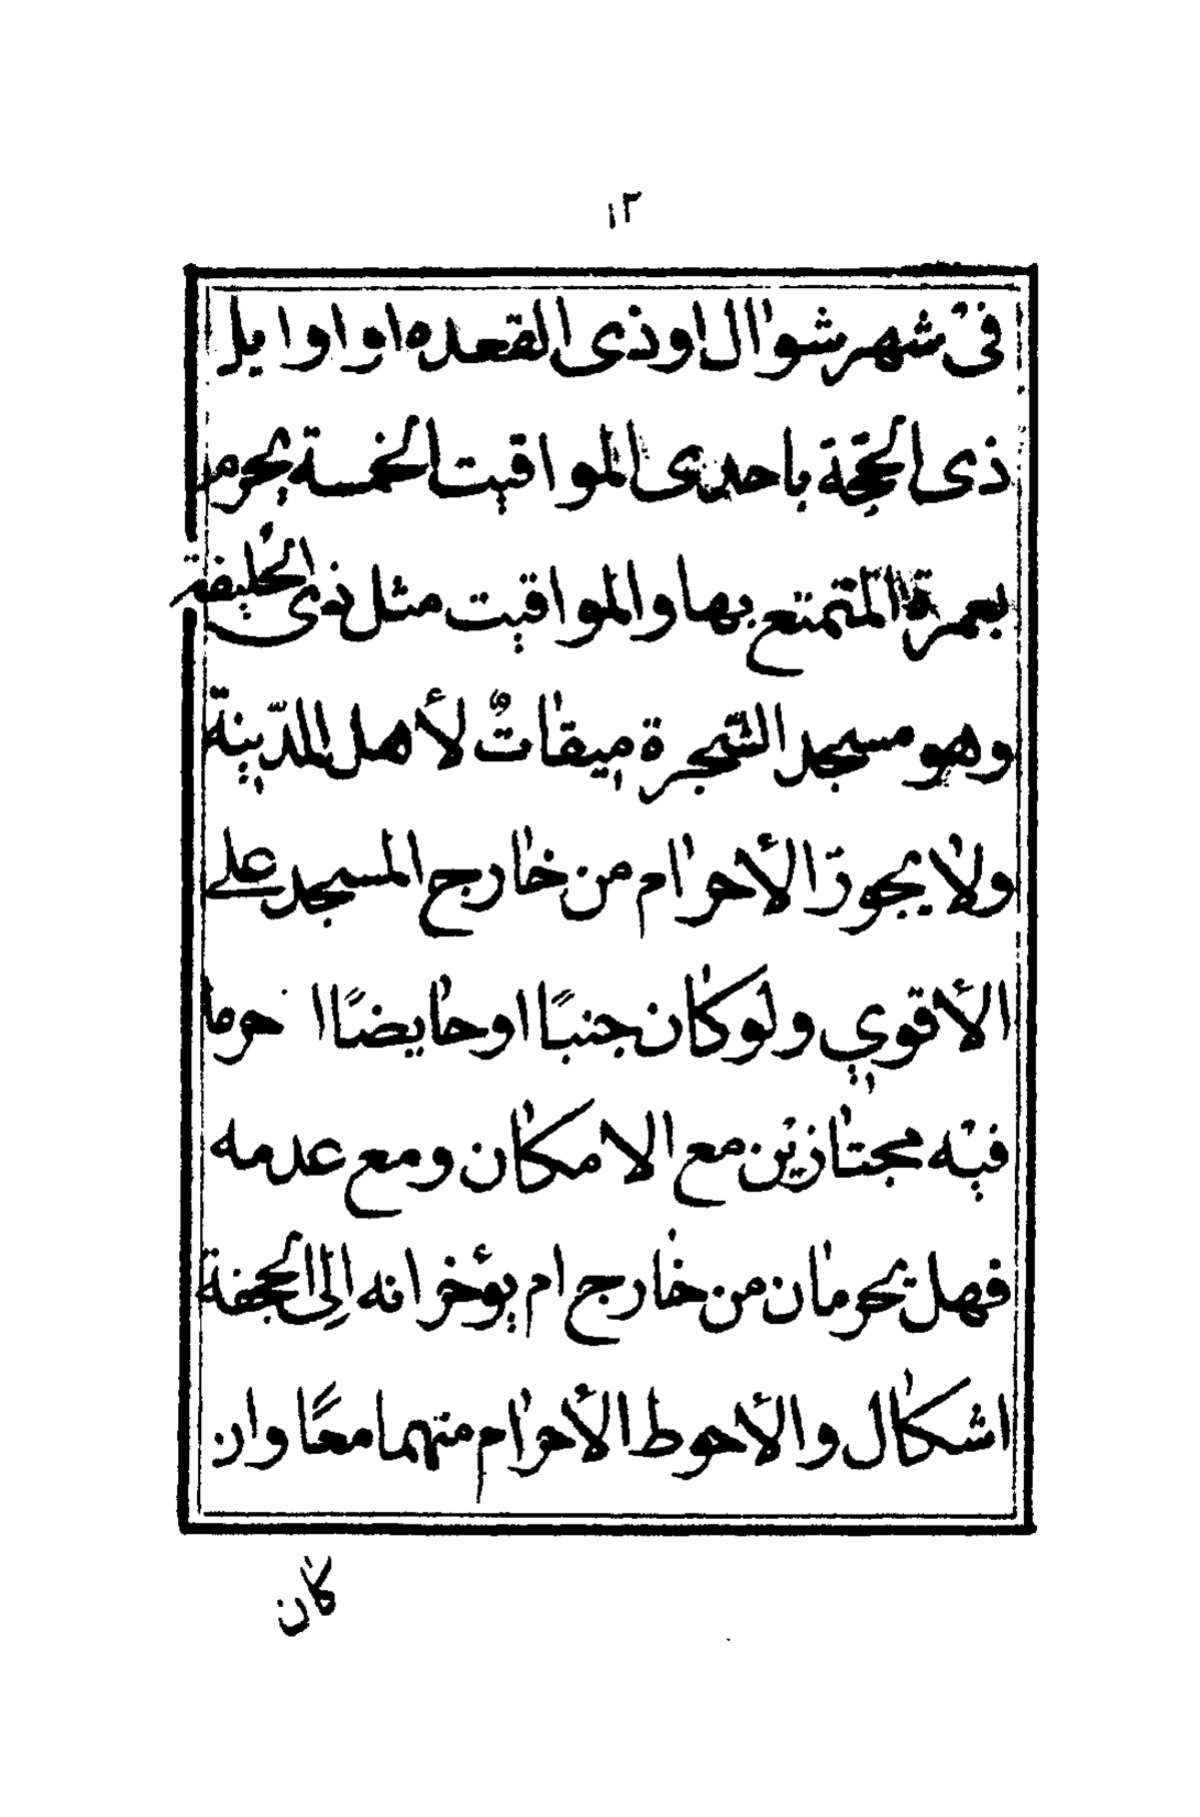 ١٣
في شهر شوال او ذى القعده او اوايل
ذى الحجّة باحدى المواقيت الخمسة يحرم
بعمرة المتمتع بها والمواقيت مثل ذى الحليفة
وهو مسجد الشّجرة ميقاتٌ لأهل المدّينة
ولا يجوز الأحرام من خارج المسجد على
الأقوي ولو كان جنبًا او حايضًا ا حرما
فيه مجتازين مع الامكان ومع عدمه
فهل يحرمان من خارج ام يؤخرانه إلى الجحفة
اشكال والأحوط الأحرام منهما معًا وان
كان